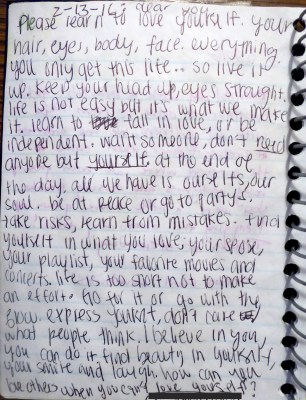 2-13-16, dear you
Please learn to love yourself. your
hair, eyes, body, face. everything.
you only get this life.. so live it
up. keep your head up, eyes straight.
life is not easy but it's what we make
it. learn to fall in love, or be
independent. want someone, don't need
anyone but yourself. at the end of
the day, all we have is ourselfs, our
soul. be at peace or go to partys.
take risks, learn from mistakes. find
yourself in what you love, your
your playlist, your favorite movies and
concerts. life is too short not to make
an effort. Go for it or go with the
flow. express yourself, don't care
what people think. I believe in you,
you can do it, find beauty in yourself,
your smile and laugh. how can you
love others when you can't love yourself?